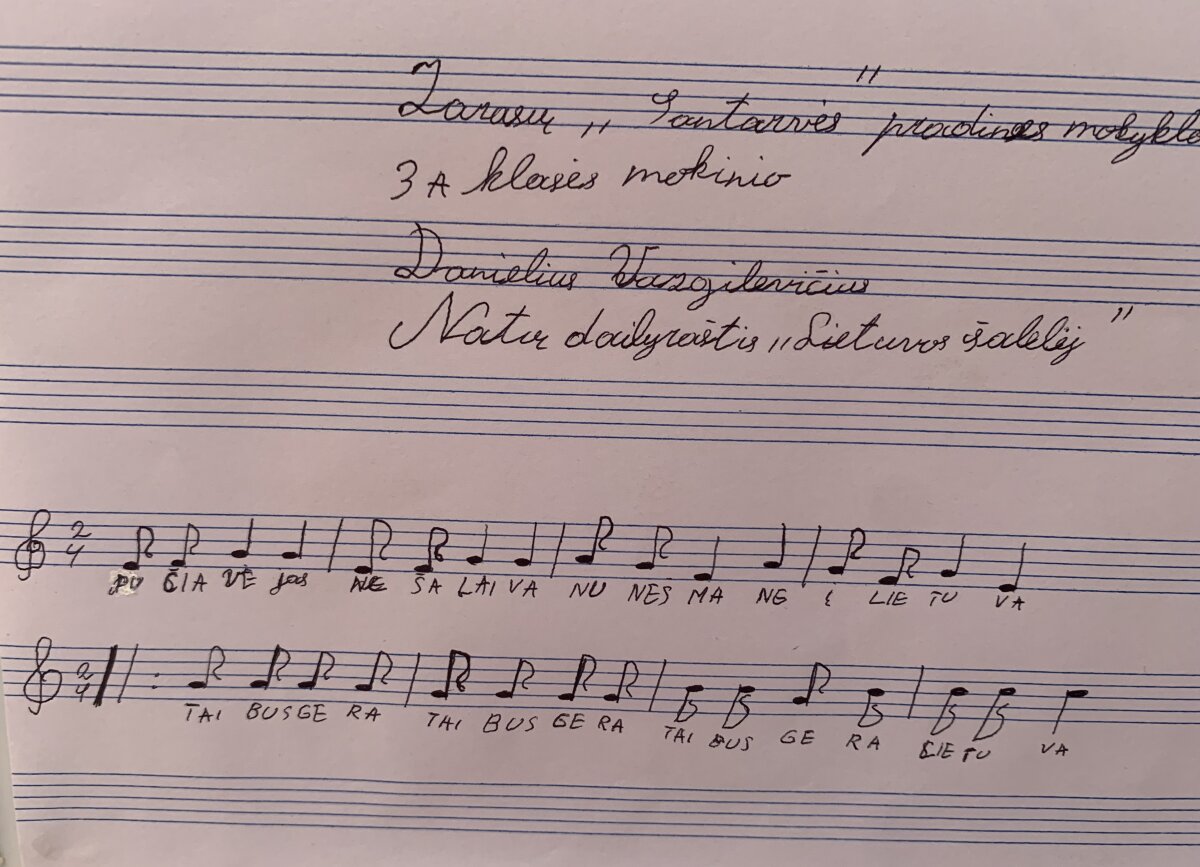 Zarasų „Santarvės" pradinės mokyklo
3 A klasės mokinio
Danielius Vazgilevičius
Natų dailyraštis „Lietuvos šalelėj"
2 4 PU ČIA VĖ jas NE ŠA LAI VA NU NEŠ MA NE Į LIE TU VA
2 4 TAI BUS GE RA TAI BUS GE RA TAI BUS GE RA LIE TU VA